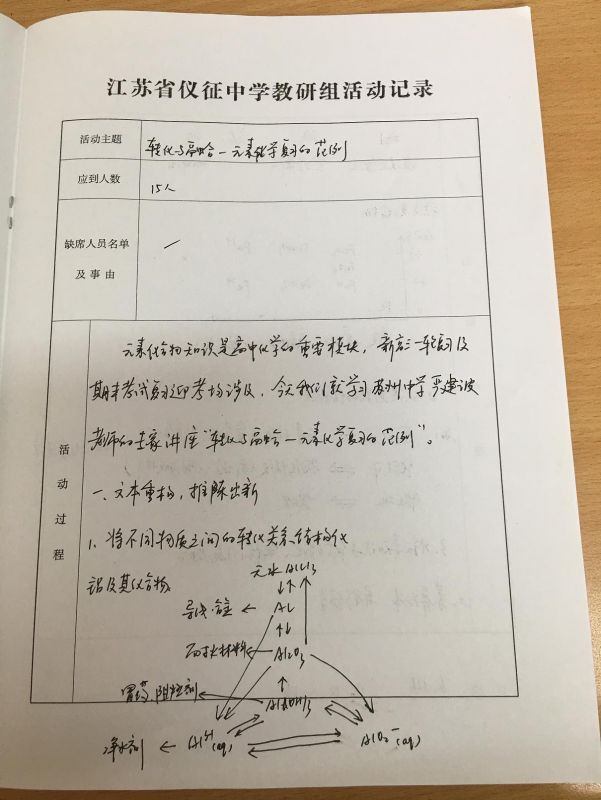 江苏省仪征中学教研组活动记录
活动主题
转化与融合—元素化学复习的范例
应到人数
15人
缺席人员名单
及事由
活动过程
元素化合物知识是高中化学的重要模块，新高三一轮复习及
期末考试复习迎考均涉及，今天我们就学习苏州中学严建波
老师的专家讲座"转化与融合—元素化学复习的范例"。
一、文本重构，推陈出新
1、将不同物质之间的转化关系结构化
铝及其化合物
无水AlCl3
导线、铝 ← Al
耐火材料 ← Al2O3
胃药、阻燃剂 ← Al(OH)3
净水剂 ← Al3+(aq)
AlO2-(aq)